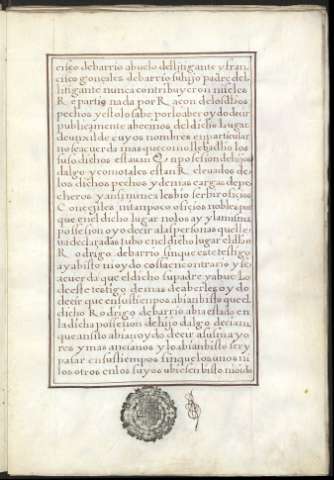 erico debarrio abuelo del litigante y fran
cisco gonçales debarrio su hijo padre del
litigante nunca contribuyeron ni se les
R epartio nada por R açon de los dhos
pechos y esto lo sabe por lo aber oydo decir
publicamente a becinos del dicho lugar
de un xil de cuyos nombres en particular
no se acuerda mas que como lleba dho los
suso dichos estauan En posesion de hijos
dalgo y como tales estan R eleuados de
los dichos pechos y demas cargas de pe
cheros y ansi nunca les bio serbir oficios
C oncegiles ni tampoco oficios nobles por
que en el dicho lugar no los ay y la misma
possesion oyo decir a las personas que lle
ua declaradas tubo en el dicho lugar el dho
R odrigo debarrio sin que este testigo
aya bisto ni oydo cossa en contrario y se
acuerda que el dicho su padre y abuelo
de este testigo demas de aberles oydo
decir que en sus tiempos abian bisto que el
dicho R odrigo debarrio abia estado en
la dicha posesion de hijo dalgo decian
que ansi lo abian oydo decir a sus mayo
res y mas ancianos y lo abian bisto ser y
pasar en sus tiempos sin que los unos ni
los otros en los suyos ubiesen bisto ni oido